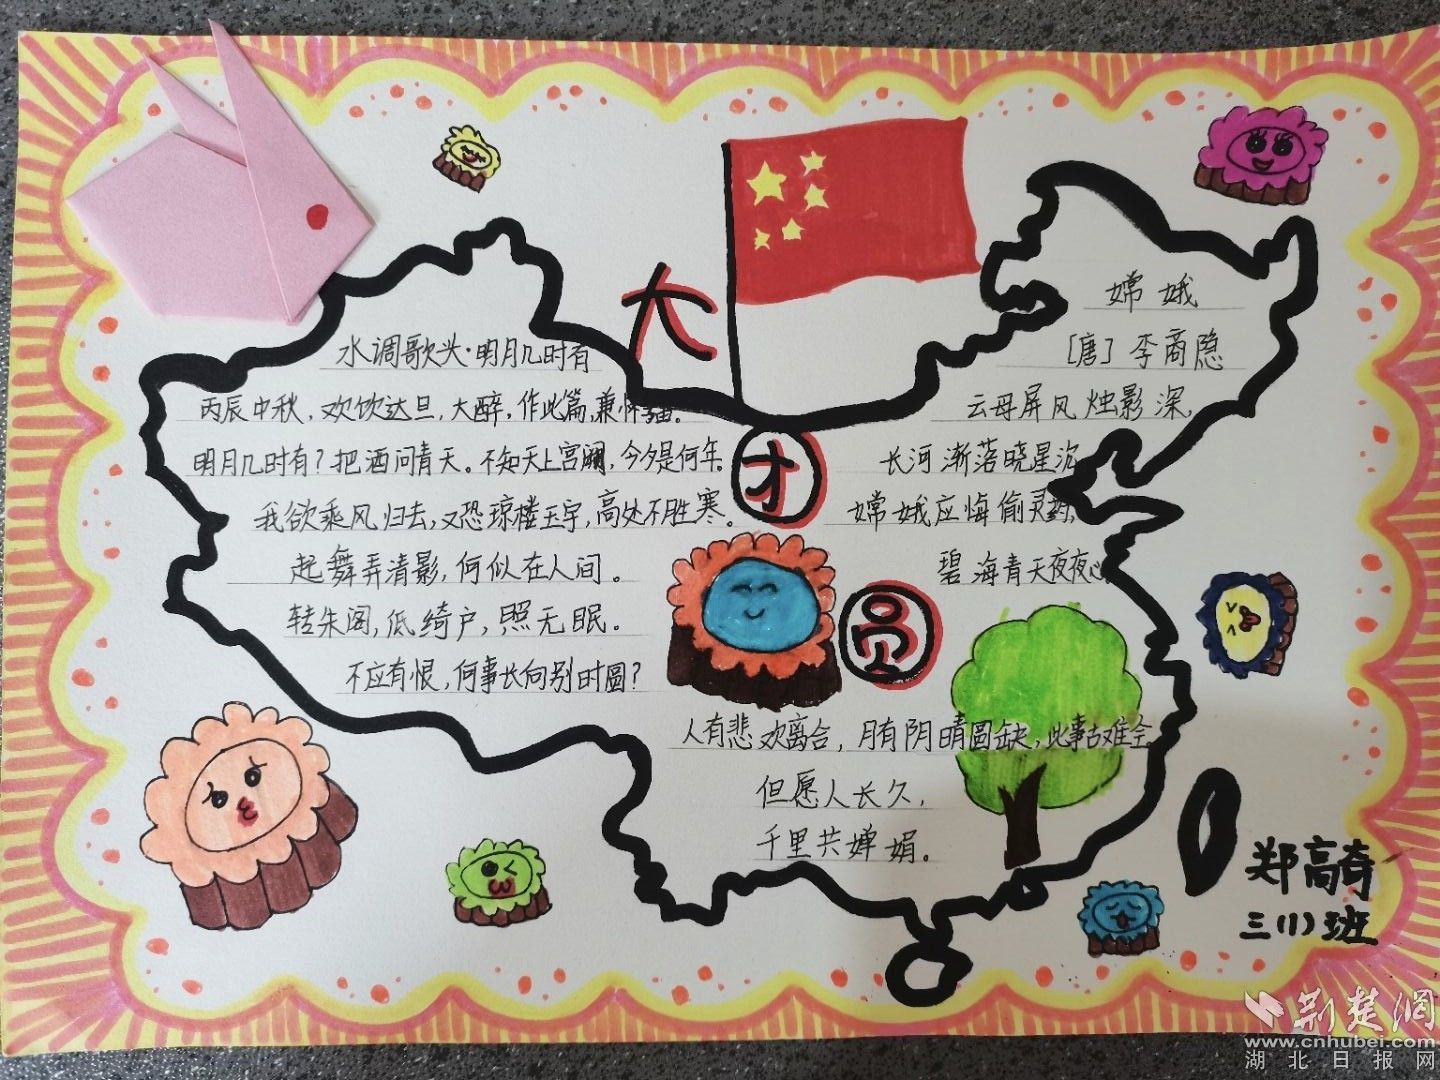 大
团
圆
水调歌头·明月几时有
丙辰中秋,欢饮达旦,大醉,作此篇,兼怀
明月几时有?把酒问青天。不知天上宫阙,今夕是何年。
我欲乘风归去,又恐琼楼玉宇,高处不胜寒。
起舞弄清影,何似在人间。
转朱阁,低绮户,照无眠。
不应有恨,何事长向别时圆?
人有悲欢离合,月有阴晴圆缺,此事古难全
但愿人长久,
千里共婵娟。
嫦娥
[唐] 李商隐
云母屏风烛影深,
长河渐落晓星沉
嫦娥应悔偷灵药,
碧海青天夜夜心
郑高奇
三(1)班
荆楚网
www.cnhubei.com
湖北日报网